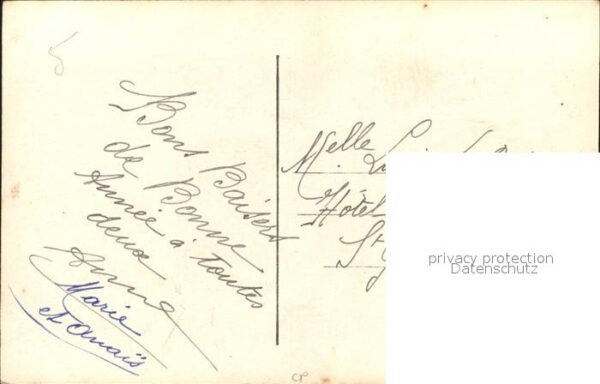 Bons Baisers
de Bonne
Année à toutes
deux
Anna
Marie
et Anaïs
Melle
Hôtel
St
privacy protection
Datenschutz
CP